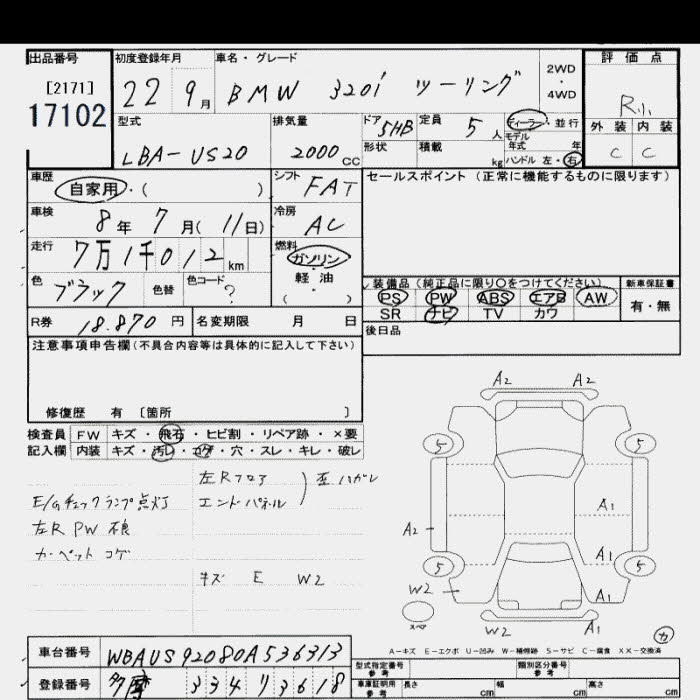 出品番号 初度登録年月 車名・グレード 2WD・4WD 評価点
[2171]
17102 22 9月 BMW 320i ツーリング R小
型式 排気量 ドア 5HB 定員 5人 ディーラー・並行 外装 内装
LBA-US20 2000cc 形状 積載 kg モデル年式 年 C C
ハンドル 左・右
車歴 自家用・( ) シフト FAT セールスポイント (正常に機能するものに限ります)
車検 8年 7月( 11日) 冷房 AC
走行 7万1千012km 燃料 ガソリン・軽油・( )
色 ブラック 色替 色コード ? 装備品(純正品に限り○をつけてください) 新車保証書
PS PW ABS エアB AW 有・無
SR ナビ TV カワ
R券 18.870円 名変期限 月 日 後日品
注意事項申告欄(不具合内容等は具体的に記入して下さい)
修復歴 有 [箇所 ]
検査員 FW キズ・飛石・ヒビ割・リペア跡・×要
記入欄 内装 キズ・汚レ・コゲ・穴・スレ・キレ・破レ
左Rフロア
E/Gチェックランプ点灯 エンドパネル 歪 ハガレ
左R PW 不良
カーペット コゲ
キズ E W2
A2 A2
5 5
A1
A2
A1
5 5
W2 A1
スペア
W2 A1
カ
A-キズ E-エクボ U-凹み W-補修跡 S-サビ C-腐食 XX-交換済
車台番号 WBAUS92080A536313
型式指定番号 参考 類別区分番号 参考
登録番号 多摩 334 リ 3618
車庫証明用 参考 長さ cm 幅 cm 高さ cm